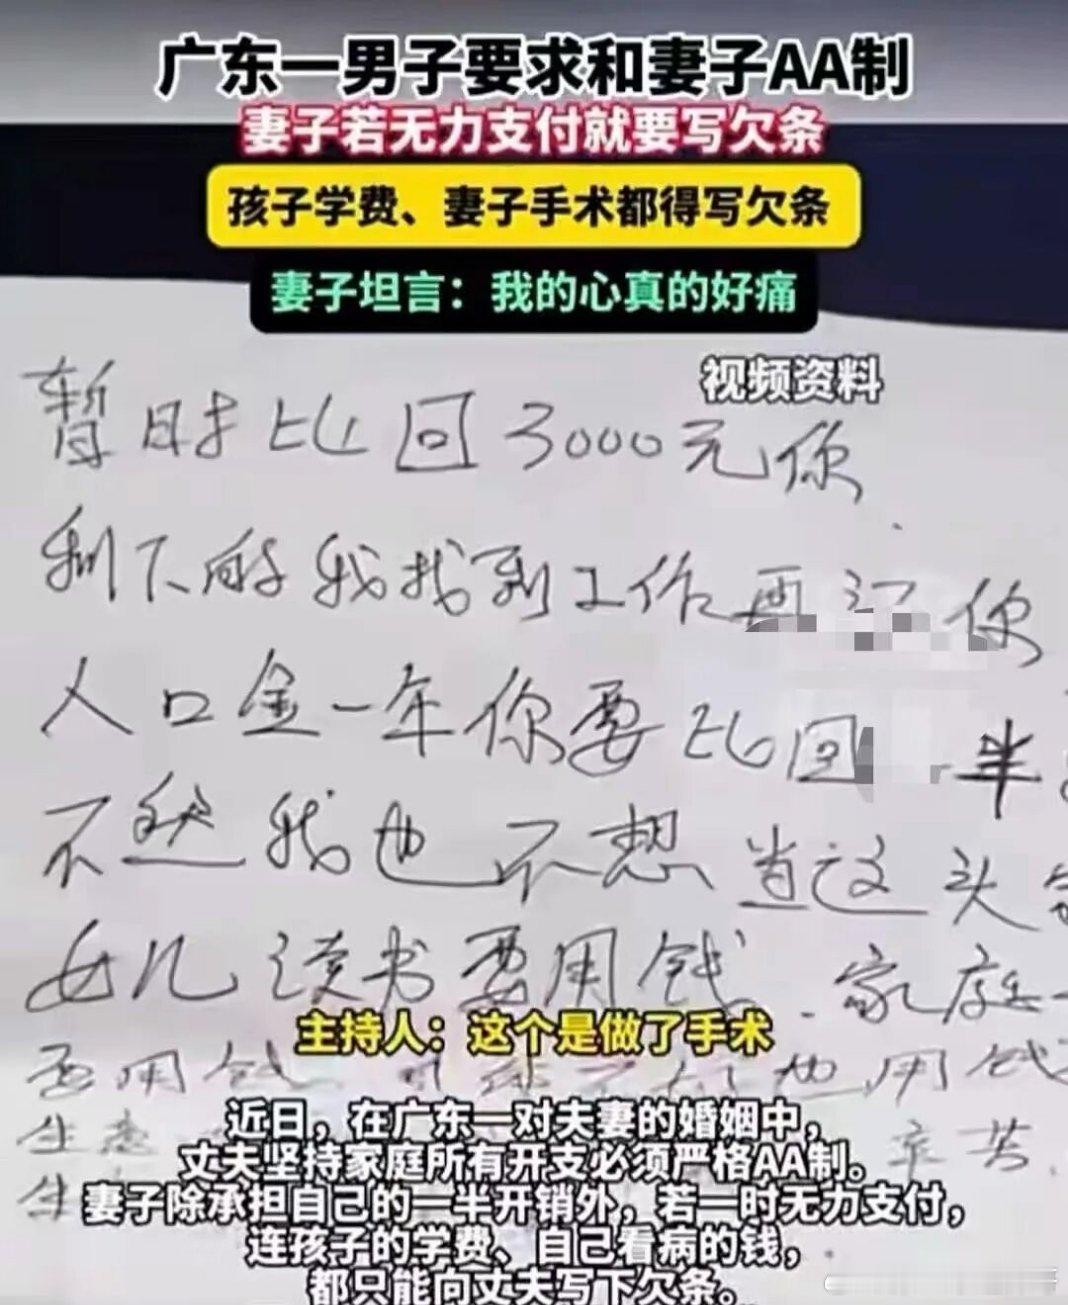 广东一男子要求和妻子AA制
妻子若无力支付就要写欠条
孩子学费、妻子手术都得写欠条
妻子坦言：我的心真的好痛
视频资料
暂时比回3000元你.
剩下的我找到工作再 你
人口金一年你要比回 半
不然我也不想当这头
女儿读书要用钱.家庭
主持人：这个是做了手术
要用钱 也用钱
生意 辛苦.
生
近日，在广东一对夫妻的婚姻中，
丈夫坚持家庭所有开支必须严格AA制。
妻子除承担自己的一半开销外，若一时无力支付，
连孩子的学费、自己看病的钱，
都只能向丈夫写下欠条。